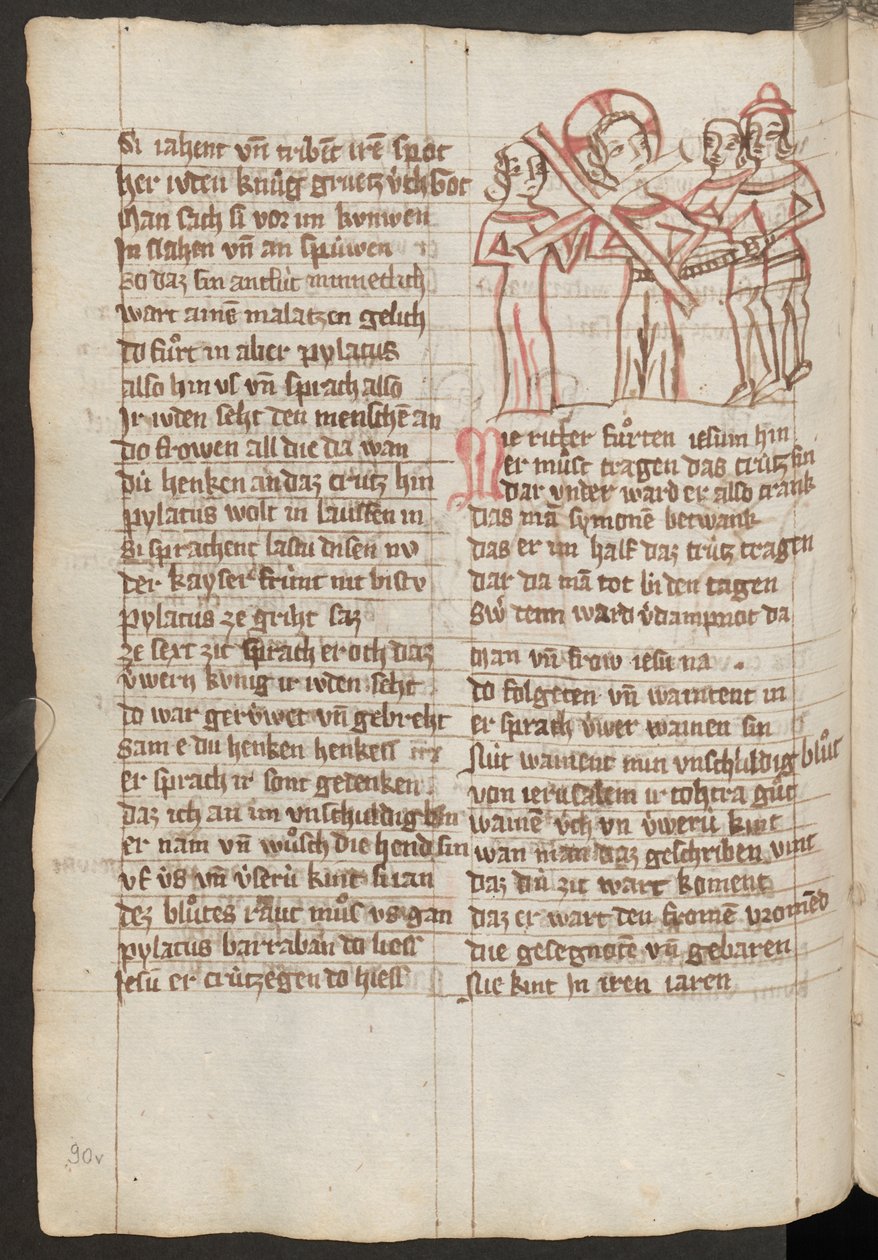 Si iahent vn̄ tribēt irē spot
her ivden knúg gruetz v́ch Got
Man sach si vor im knuwen
In slahen vn̄ an spúwen
So daz sin antlút minneclich
wart ainē malatzen gelich
do fuͦrt in aber pylatus
also hin vs vn̄ sprach also
Ir ivden seht den menschē an
do frowen all die da wan
dú henken an daz crútz hin
pylatus wolt in laussen in
Si sprachent lastu disen nv
der kayser frúnt nit bistv
pylatus ze griht saz
ze sext zit sprach er och daz
v́wern kvnig ir ivden seht
do war gerv́wet vn̄ gebreht
Sam e du henken henken
er sprach ir sont gedenken
daz ich an im vnschuldig bin
er nam vn̄ wuͦsch die hend sin
vf v́s vn̄ v́serú kint sú ran
dez bluͦtes raut muͦs vs gan
pylatus barraban do liess
Jesū er crútzegen do hiess
Die ritter fuͦrten iesum hin
er muͦst tragen das crútz sin
dar vnder ward er also crank
das mā symonē betwank
das er im half daz crútz tragen
dar da mā tot bi den tagen
Sẃ denn ward v́dampnot da
Man vn̄ frow iesu na
do folgeten vn̄ waintent in
er sprach v́wer wainen sin
Nút wainent min vnschuldig bluͦt
von ierusalem ir tohtra guͦt
wainē v́ch vn v́werú kint
wan man daz geschriben vint
daz dú zit wart koment
daz er wart den fromē vromēd
die gesegnotē vn̄ gebaren
Nie kint In iren iaren
90v